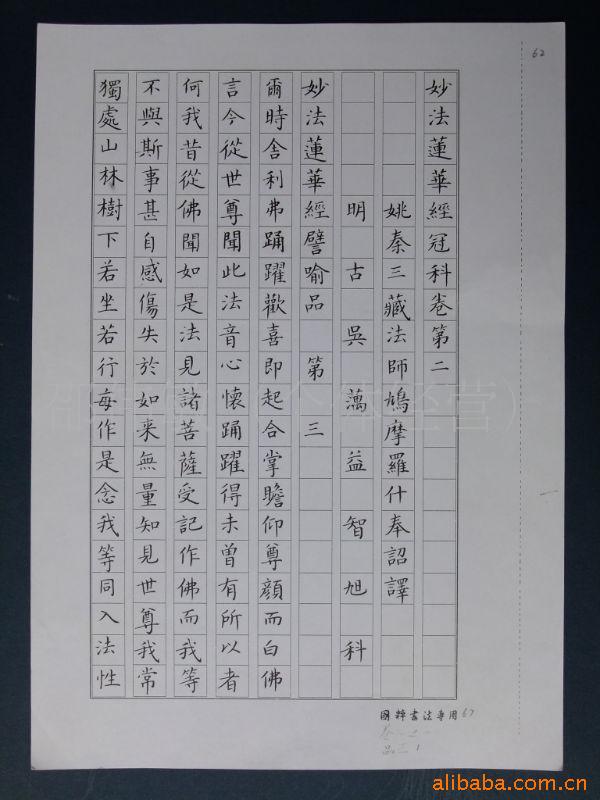 62
妙法蓮華經冠科卷第二
姚秦三藏法師鳩摩羅什奉詔譯
明古吳蕅益智旭科
妙法蓮華經譬喻品 第三
爾時舍利弗踊躍歡喜即起合掌瞻仰尊顏而白佛
言今從世尊聞此法音心懷踊躍得未曾有所以者
何我昔從佛聞如是法見諸菩薩受記作佛而我等
不與斯事甚自感傷失於如來無量知見世尊我常
獨處山林樹下若坐若行每作是念我等同入法性
國粹書法專用 67
alibaba.com.cn